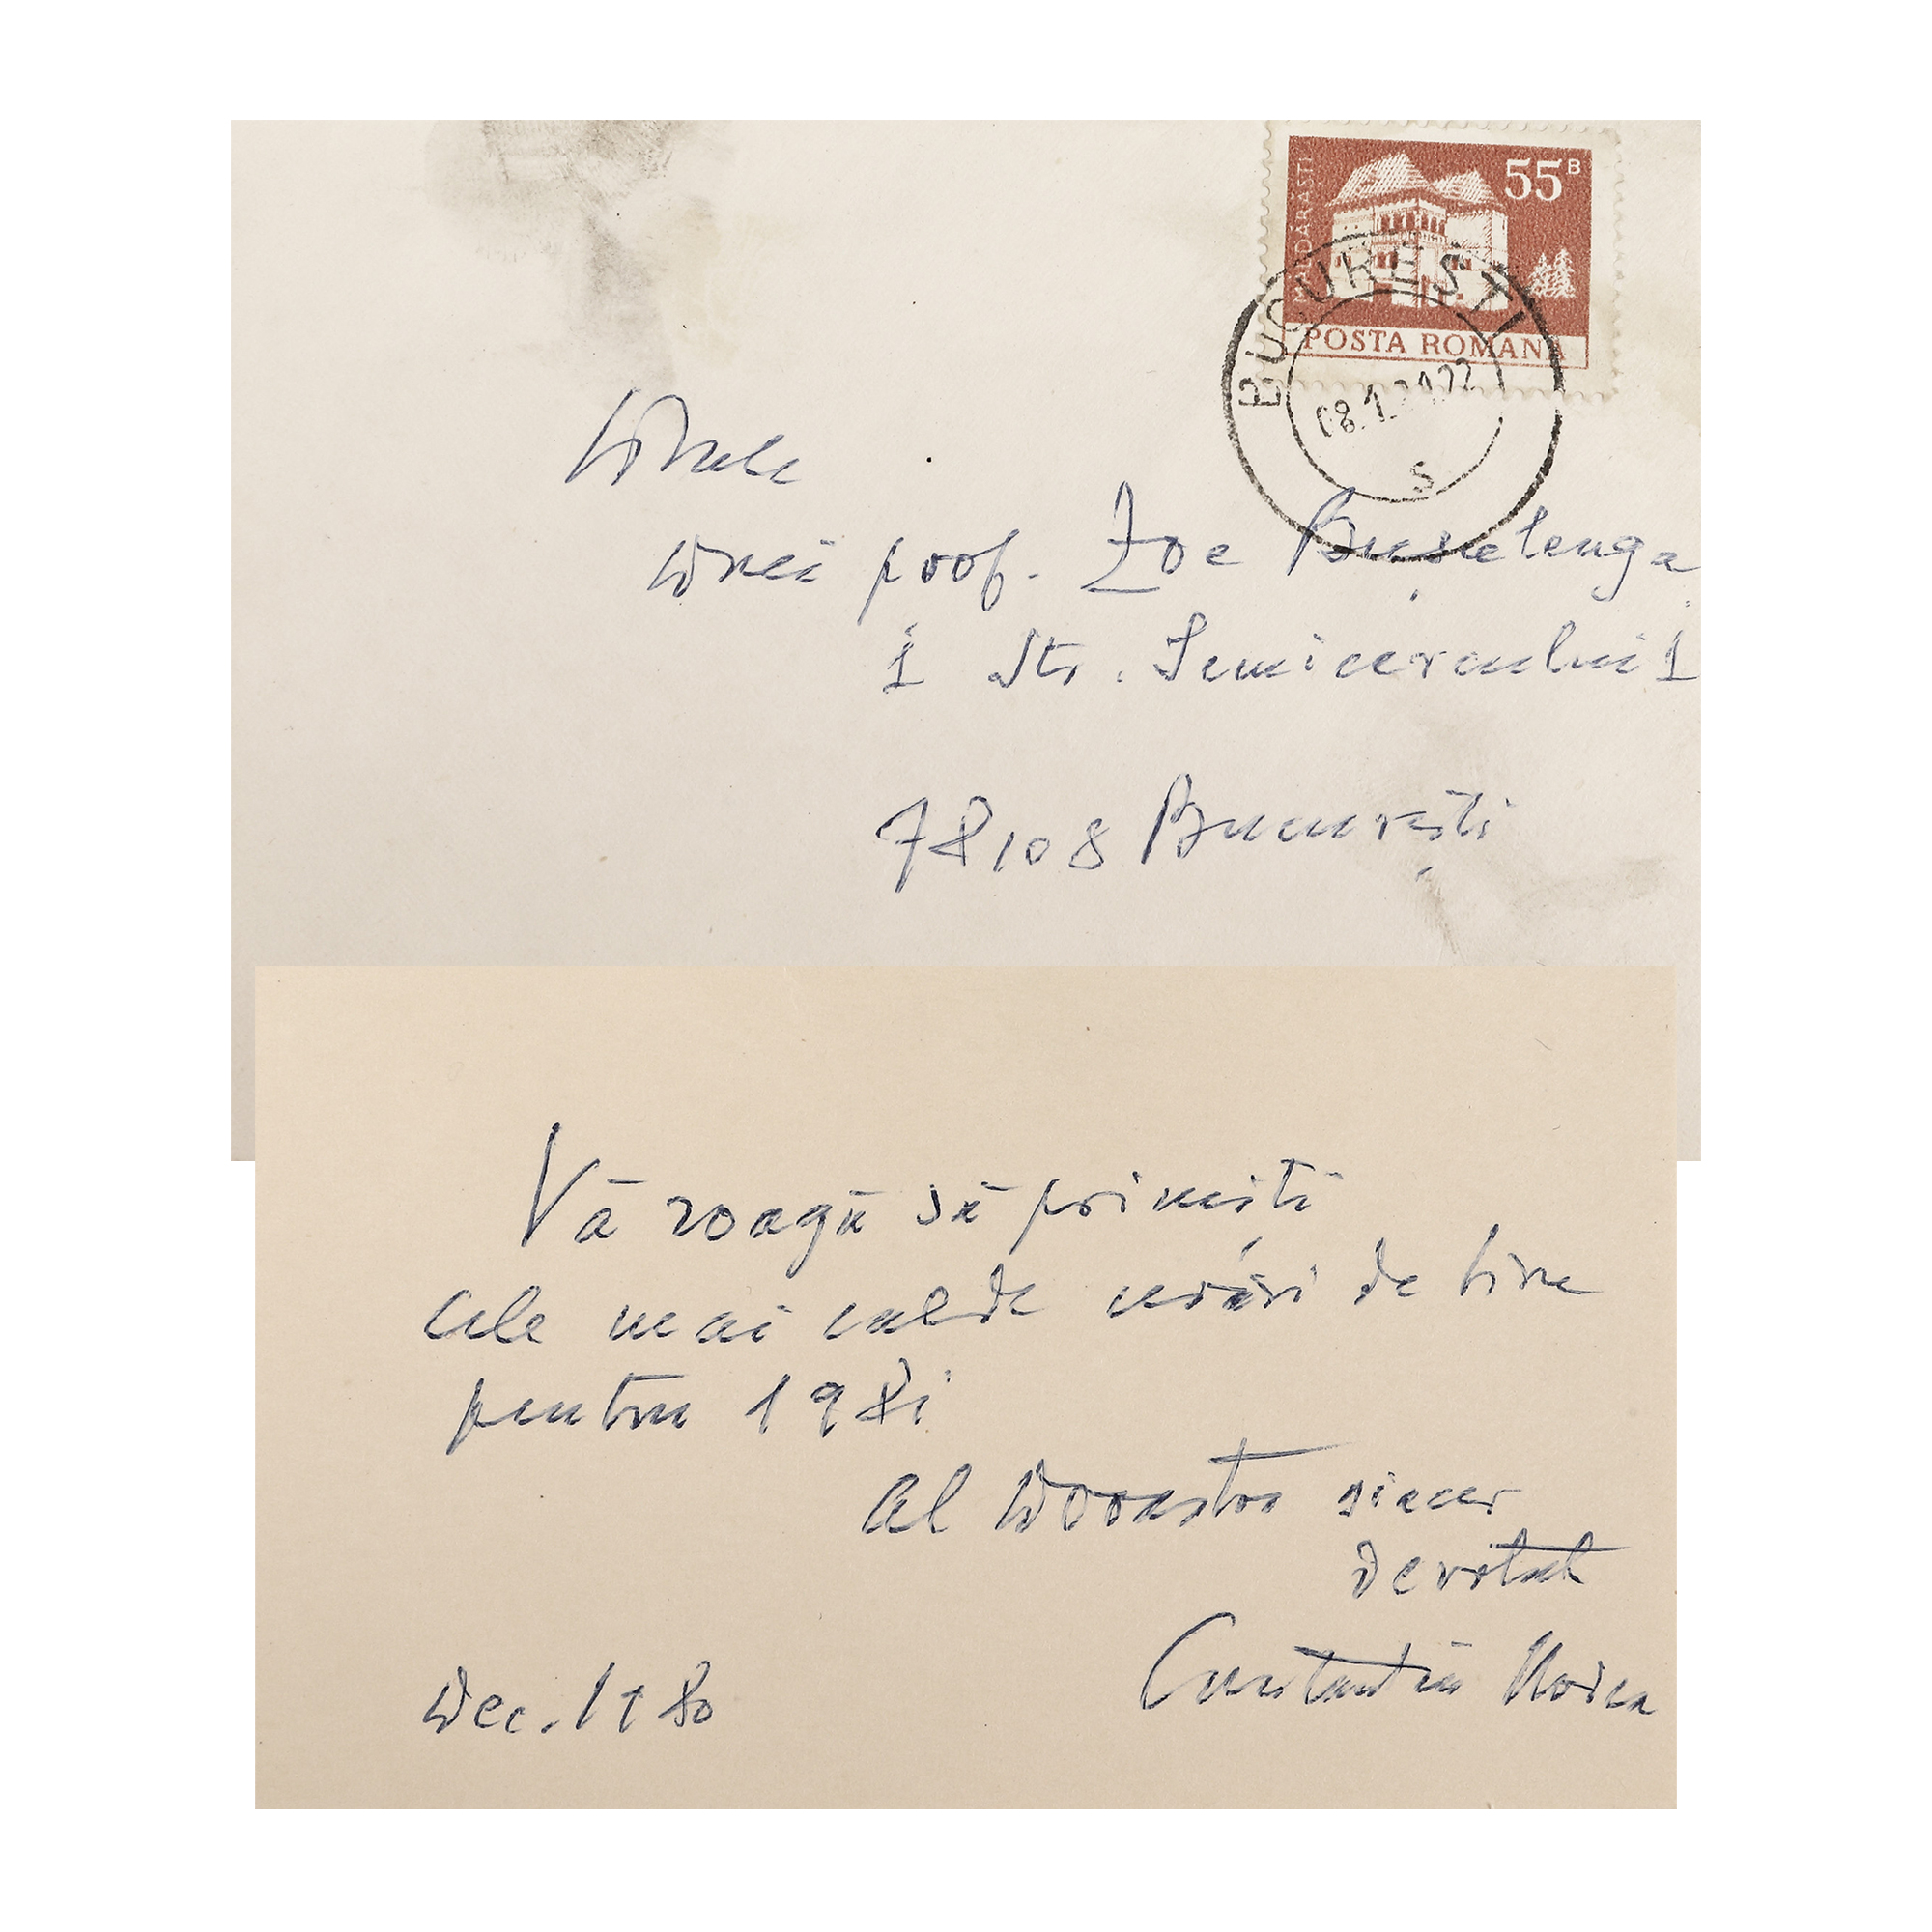 MALDARASTI
55 B
POSTA ROMANA
BUCURESTI
08.1
S
Dnei prof. Zoe Bușulenga
1 Str. Semicercului 1
78108 București
Vă roagă să primiți
cele mai calde urări de bine
pentru 1981
al Dvoastră sincer
devotat
Constantin Noica
Dec. 1980